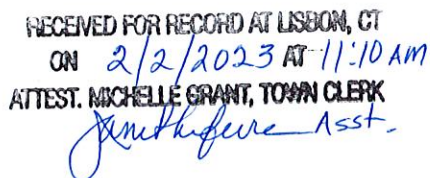 RECEIVED FOR RECORD AT LISBON, CT
ON 2/2/2023 AT 11:10 AM
ATTEST. MICHELLE GRANT, TOWN CLERK
Asst.